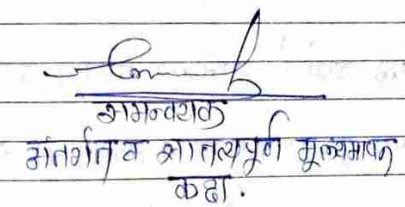 समन्वयक
अंतर्गत व सातत्यपूर्ण मूल्यमापन
कक्ष.